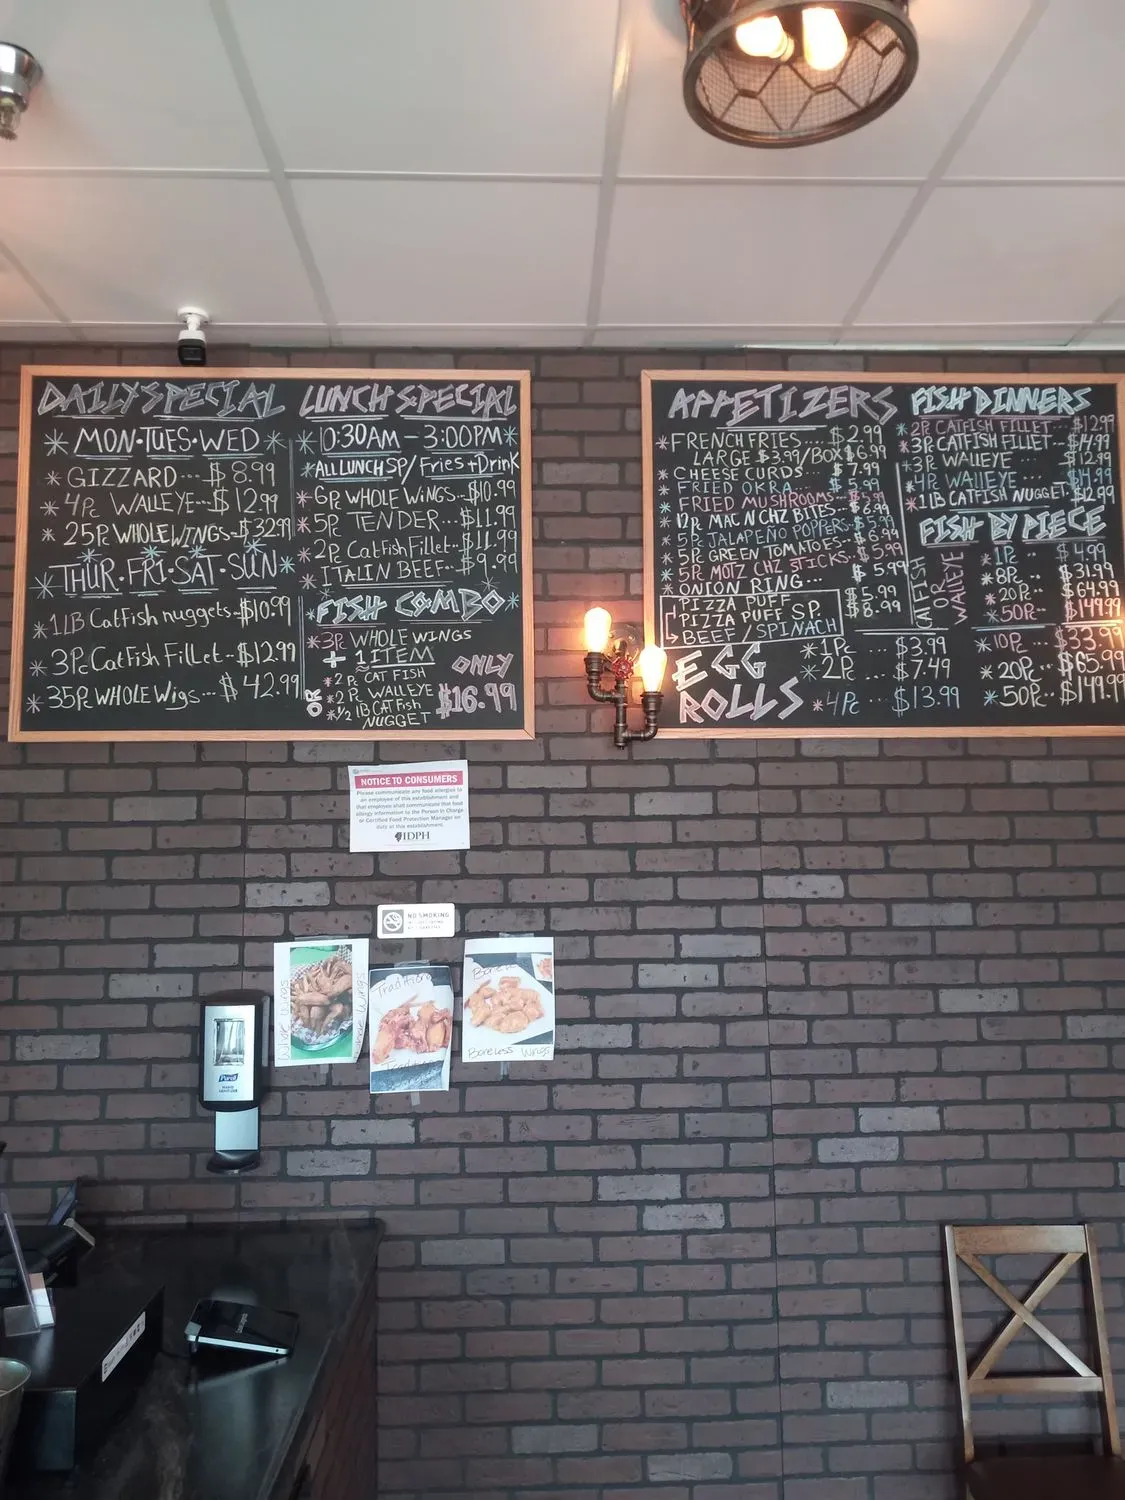 DAILY SPECIAL
MON·TUES·WED
GIZZARD---$8.99
4Pc WALLEYE--$12.99
25Pc WHOLE WINGS--$32.99
THUR·FRI·SAT·SUN
1LB CatFish nuggets-$10.99
3Pc CatFish FilLet--$12.99
35Pc WHOLE Wigs---$42.99
LUNCH SPECIAL
10:30AM-3:00PM
ALL LUNCH SP/ Fries+Drink
6Pc WHOLE WINGS--$10.99
5Pc TENDER---$11.99
2Pc CatFish Fillet--$11.99
ITALIN BEEF--$9.99
FISH COMBO
3Pc WHOLE WINGS
+ 1 ITEM
2 Pc CAT FISH
OR
2 Pc WALLEYE
1/2 1B CAT Fish
NUGGET
ONLY
$16.99
APPETIZERS
FRENCH FRIES----$2.99
LARGE $3.99/BOX $6.99
CHEESE CURDS---$7.99
FRIED OKRA--$5.99
FRIED MUSHROOMS--$5.99
12Pc MAC N CHZ BITES--$6.99
5Pc JALAPENO POPPERS-$5.99
5Pc GREEN TOMATOES--$6.99
5Pc MOTZ CHZ STICKS-$5.99
ONION RING--- $5.99
PIZZA PUFF $5.99
PIZZA PUFF SP. $8.99
BEEF/SPINACH
EGG
ROLLS
1Pc --$3.99
2Pc --$7.49
4Pc --- $13.99
FISH DINNERS
2P CATFISH FILLET--$12.99
3P CATFISH FILLET--$14.99
3P WALLEYE $12.99
4P WALLEYE $14.99
1LB CATFISH NUGGET $12.99
FISH BY PIECE
CATFISH
OR
WALLEYE
1Pc -- $4.99
8Pc -- $31.99
20Pc -- $64.99
50Pc-- $149.99
10Pc -- $33.99
20Pc-- $65.99
50Pc-- $149.99
NOTICE TO CONSUMERS
Please communicate any food allergies to
an employee of this establishment and
that employee shall communicate that food
allergy information to the Person in Charge
or Certified Food Protection Manager on
duty at this establishment.
IDPH
NO SMOKING
Whole Wings
Whole Wings
Traditional
Traditional
Boneless
Boneless Wings
Purell
HAND
SANITIZER